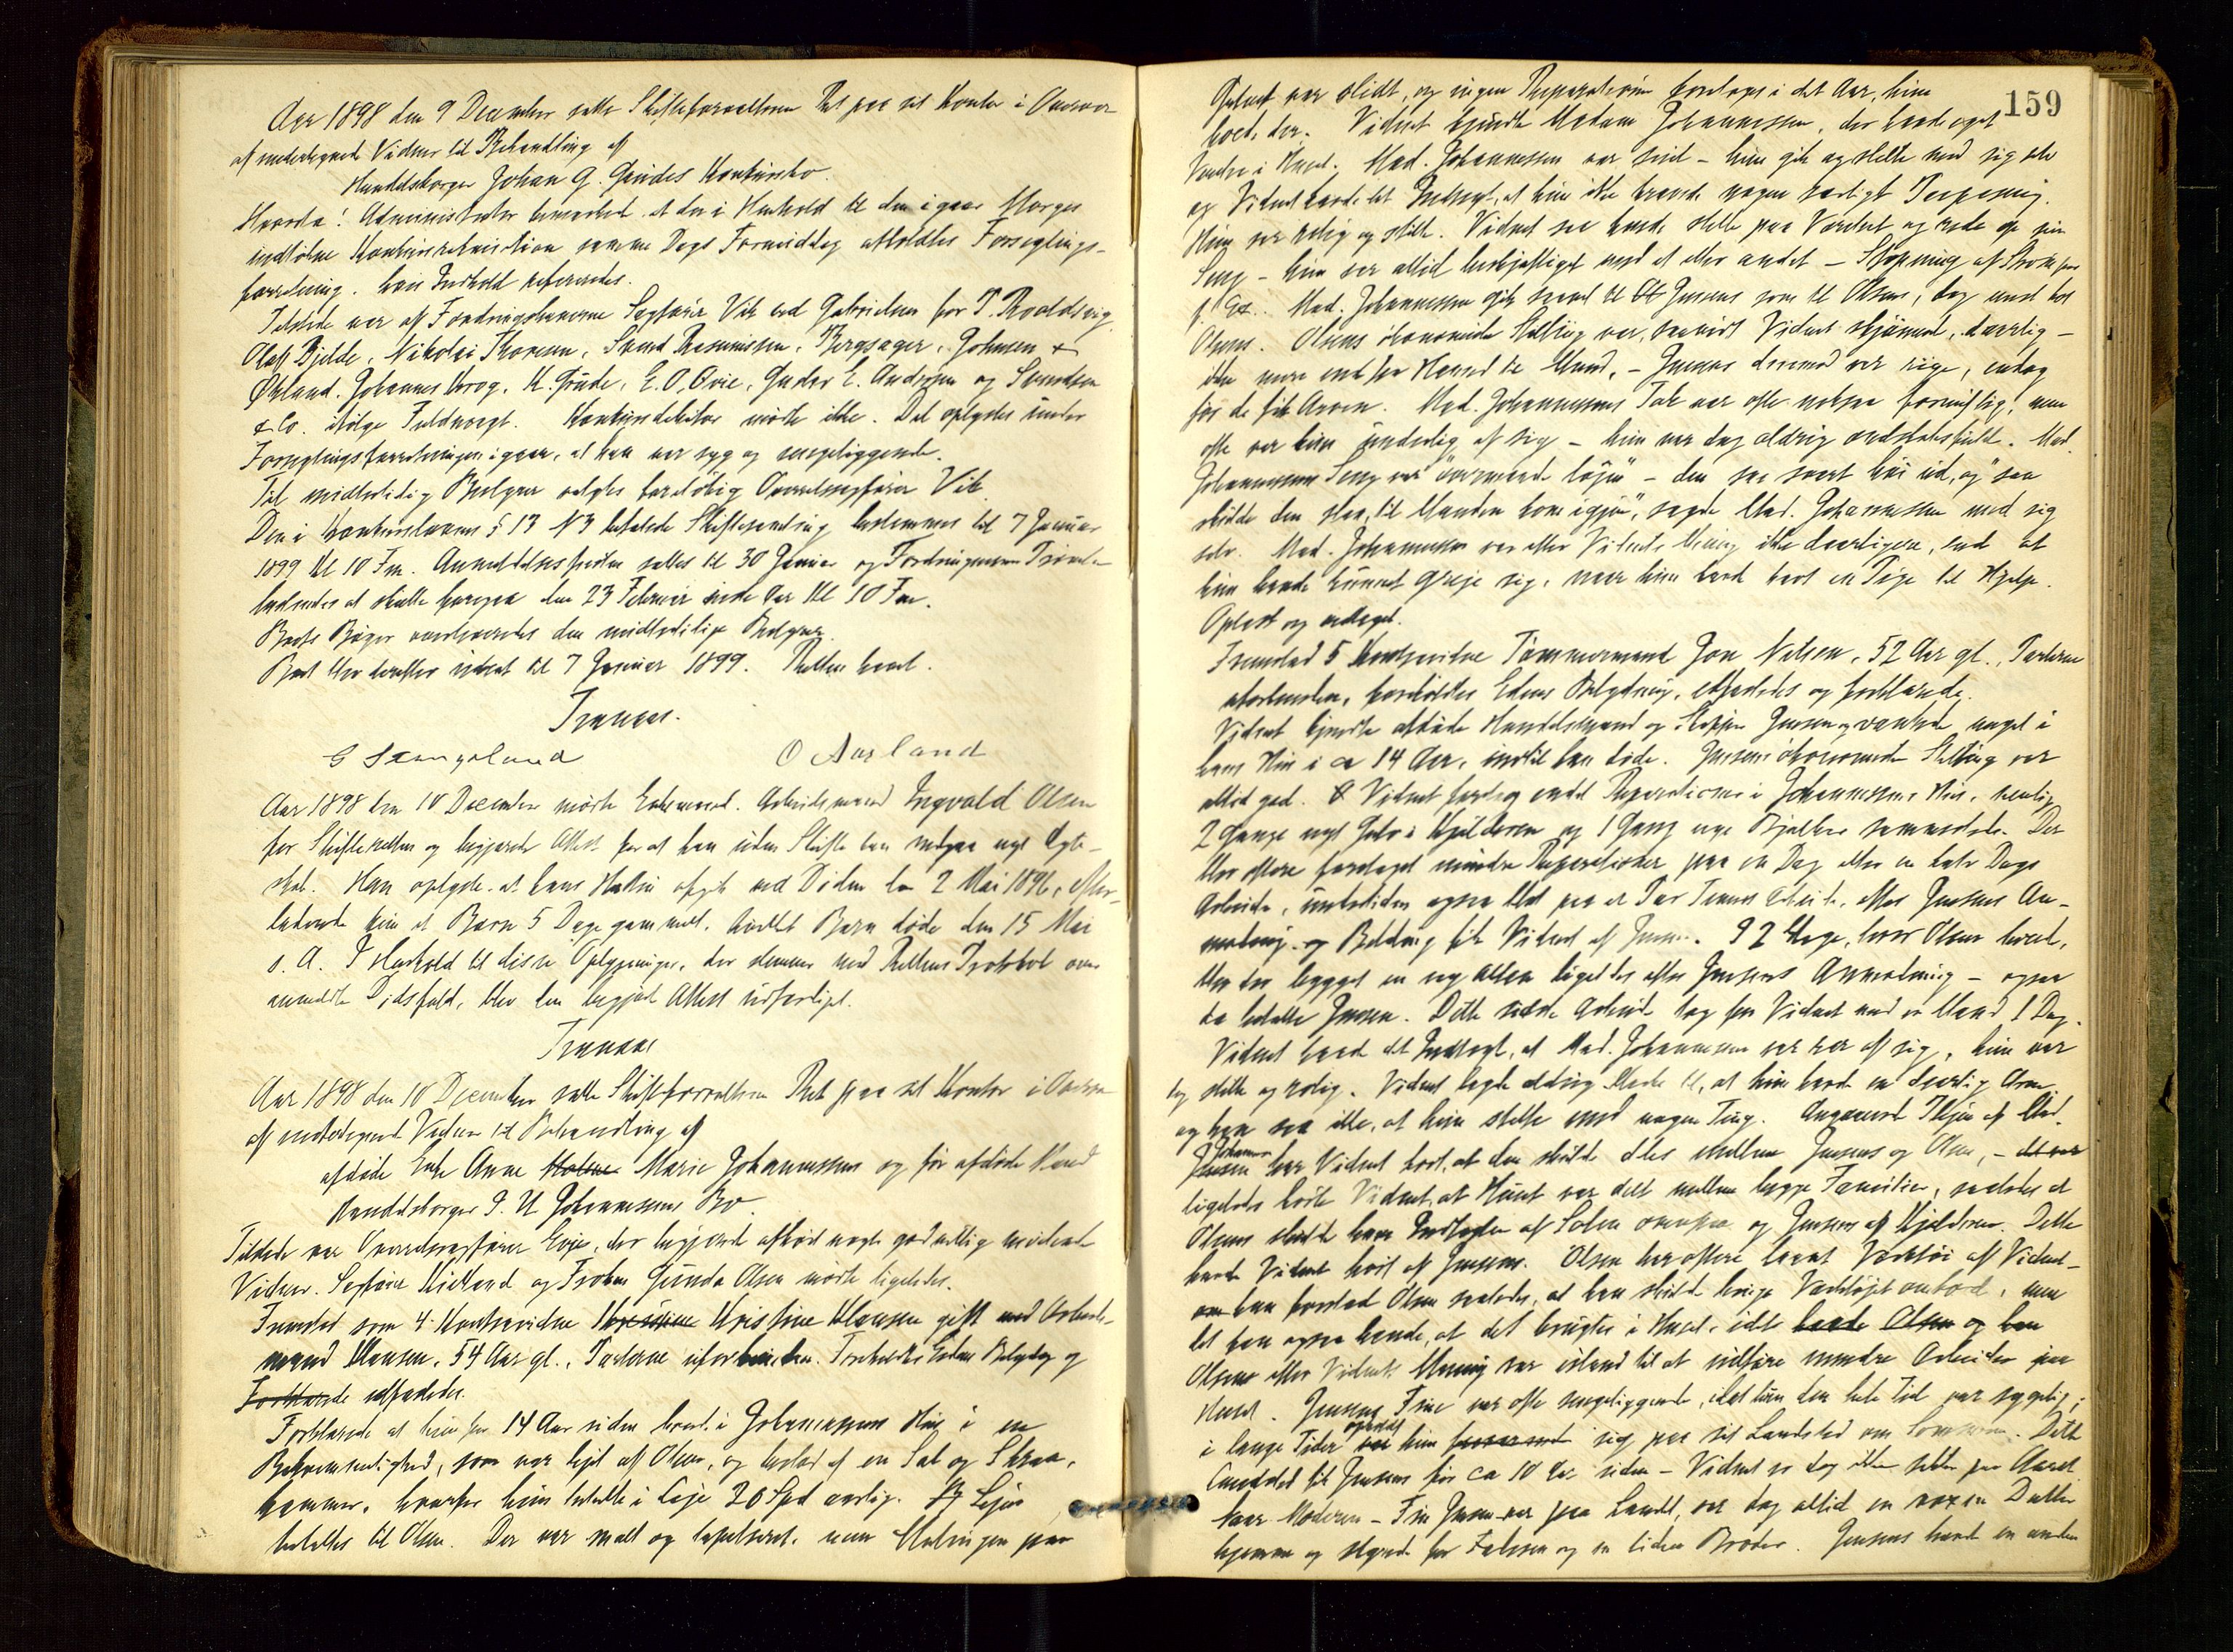 Aar 1898 den 9 December satte Skifteforvalteren Ret paa sit Kontor i Overvær
af undertegnede Vidner til Behandling af
Handelsborger Johan G. Grudes Konkursbo.
Hvorda! Administrator bemærked at der i Henhold til den igaar Morges
indkomne Konkursrekvisition samme Dags Formiddag afholdtes Forseglings-
forretning. hvis Indhold refereredes.
Tilstede var af Fordringshaverne Sagfører Vik ved Gabrielsen for T. Roaldsvig
Olaf Djelde, Nikolai Thorsen, Svend Rasmussen, Bergsager, Johnsen &
Økland. Johannes Vorog. K. Grude, E. O. Ovie, Gudor E. Andersen og Svendsen
& Co. ifølge Fuldmagt. Konkursdebitor mødte ikke. Det oplystes under
Forseglingsforretningen igaar, at han var syg og sengeliggende.
Til midlertidig Bestyrer valgtes foreløbig Overretssagfører Vik.
Den i Konkurslovens § 13 N 3 befalede Skiftesamling bestemmes til 7 Januar
1899 Kl 10 Fm. Anmeldelsesfristen sattes til 30 Januar og Fordringernes Prøvelse
at skulle foregaa den 23 Februar Kl 10 Fm.
Boets Bøger overleveredes den midlertidige Bestyrer.
Boet blev derefter udsat til 7 Januar 1899. Retten hævet.
G Stangeland O Aarland
Aar 1898 den 10 December mødte Enkemand. Arbeidsmand Ingvald Olsen
for Skifteretten og begjærede Attest for at han uden Skifte kan indgaa nyt Ægte-
skab. Han oplyste at hans Hustru afgik ved Døden den 2 Mai 1896, efter-
ladende kun et Barn 5 Dage gammelt. hvilket Barn døde den 15 Mai
s. A. I Henhold til disse Oplysninger, der stemmer med Rettens Protokol over
anmeldte Dødsfald, blev den begjærte Attest udfærdiget.
Aar 1898 den 10 December satte Skifteforvalteren Ret paa sit Kontor i Overvær
af undertegnede Vidner til Behandling af
afdøde Enke Anne Marie Johannessens og før afdøde Mand
Handelsborger P. U. Johannessens Bo.
Tilstede var Overretssagfører Eeje, der begjærede afhørt nogle godvillig mødende
Vidner. Sagfører Kielland og Frøken Gunda Olsen mødte ligeledes.
Fremstod som 4. Kontravidne Kristine Klausen gift med Arbeids-
mand Klausen, 54 Aar gl., Parterne uforbunden. Foreholdtes Edens Betydning og
Forklarede edfæstedes.
Forklarede at hun for 14 Aar siden boede i Johannessens Hus i en
Bekvemmelighed, som var lejet af Olsen, og bestod af en Sal og Skraa-
kammer, hvorfor hun betalte i Leje 20 Spd aarlig. Lejen
betaltes til Olsen. Der var malt og tapetseret, men Malingen paa
159
Gulvet var slidt, og ingen Reparation foretoges i det Aar, hun
boede der. Vidnet kjendte Madam Johannessen, der havde eget
Værelse i Huset. Mad. Johannessen var snil - hun gik og stelte med sig selv
og Vidnet havde det Indtryk, at hun ikke krævede nogen særligt Terpening.
Hun var rolig og stille. Vidnet saa hende stelle paa Værelset og rede op sin
Seng - hun var altid beskjæftiget med et eller andet - Stopning af Strømper
f. Ex. Mad. Johannessen gik saavel til Jensens som til Olsens, dog mest hos
Olsens. Olsens økonomiske Stilling var, saavidt Vidnet skjønnede, daarlig -
ikke mere end fra Haand til Mund, - Jensens derimod var rige, endog
før de fik Arven. Mad. Johannessens Tale var ofte nokså fornuftig, men
ofte var hun underlig af sig - hun var dog aldrig ondskabsfuld. Mad
Johannessens Seng var "overmaade løjen" - den saa svært høi ud, og "saa
skulde den staa, til Manden kom igjen", sagde Mad. Johannessen med sig
selv. Mad. Johannessen var efter Vidnets Mening ikke daarligere, end at
hun havde kunnet greje sig, naar hun havde havt en Pige til Hjælp.
Oplæst og vedtaget.
Fremstod 5 Kontravidne Tømmermand Jon Nilsen, 52 Aar gl., Parterne
uforbunden, foreholdtes Edens Betydning, edfæstedes og forklarede.
Vidnet kjendte afdøde Handelsmand og Skipper Jensen og vankede meget i
hans Hus i ca 14 Aar, indtil han døde. Jensens økonomiske Stilling var
altid god. Vidnet foretog endel Reparationer i Johannessens Hus, nemlig
2 Gange nyt Gulv i Kjælderen og 1 Gang nye Bjælker sammesteds. Der
blev oftere foretaget mindre Reparationer paa en Dag eller en halv Dags
Arbeide, undertiden ogsaa blot paa et Par Timers Arbeide, efter Jensens An-
modning og Betaling fik Vidnet af Jensen. I 2 Etage, hvor Olsen boede,
blev der bygget en ny Altan ligeledes efter Jensens Anmodning - ogsaa
da betalte Jensen. Dette sidste Arbeide tog for Vidnet med en Mand 1 Dag.
Vidnet havde det Indtryk, at Mad. Johannessen var rar af sig, hun var
dog stille og rolig. Vidnet lagde aldrig Mærke til, at hun havde en daarlig Arm,
og han saa ikke, at hun stelte med nogen Ting. Angaaende Pleien af Mad.
Johannes. har Vidnet hørt, at den skulde deles mellem Jensens og Olsen, -
ligeledes hørte Vidnet, at Huset var delt mellem begge Familier, saaledes at
Olsens skulde have Indtægten af Salen ovenpaa og Jensens af Kjælderen. Dette
havde Vidnet hørt af Jensens. Olsen har oftere laant Værktøi af Vidnet -
han forstod Olsen saaledes, at han skulde bruge Værktøjet ombord, men
det kan ogsaa hænde, at det brugtes i Huset, idet
Olsen efter Vidnets Mening var istand til at udføre mindre Arbeider paa
Huset. Jensens Frue var ofte sengeliggende, idet hun den hele Tid var sygelig;
i lange Tider opholdt hun sig paa sit Landsted om Sommeren. Dette
Landsted fik Jensens for ca 10 Aar siden - Vidnet er dog ikke sikker paa Aaret.
Naar Moderen - Fru Jensen - var paa Landet, var dog altid en voxen Datter
hjemme og styrede for Faderen og en liden Broder. Jensens havde en anden